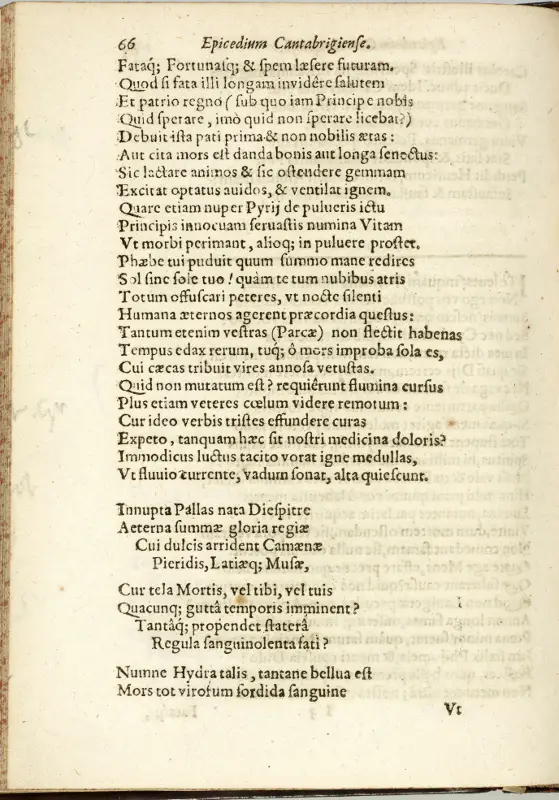 66 Epicedium Cantabrigiense.
Fataq; Fortunasq; & spem læsere futuram.
Quod si fata illi longam invidêre salutem
Et patrio regno ( sub quo iam Principe nobis
Quid sperare, imò quid non sperare licebat?)
Debuit ista pati prima & non nobilis ætas :
Aut cita mors est danda bonis aut longa senectus:
Sic lactare animos & sic ostendere gemmam
Excitat optatus avidos, & ventilat ignem.
Quare etiam nuper Pyrij de pulueris ictu
Principis innocuam seruastis numina Vitam
Vt morbi perimant, alioq; in puluere prostet.
Phæbe tui puduit quum summo mane redires
Sol sine sole tuo ! quàm te tum nubibus atris
Totum offuscari peteres, vt nocte silenti
Humana æternos agerent præcordia questus:
Tantum etenim vestras (Parcæ) non flectit habenas
Tempus edax rerum, tuq; ô mors improba sola es,
Cui cæcas tribuit vires annosa vetustas.
Quid non mutatum est ? requiêrunt flumina cursus
Plus etiam veteres cœlum videre remotum :
Cur ideo verbis tristes effundere curas
Expeto, tanquam hæc sit nostri medicina doloris?
Immodicus luctus tacito vorat igne medullas,
Vt fluuio currente, vadum sonat, alta quiescunt.
Innupta Pallas nata Diespitre
Aeterna summæ gloria regiæ
Cui dulcis arrident Camænæ
Pieridis, Latiæq; Musæ,
Cur tela Mortis, vel tibi, vel tuis
Quacunq; guttâ temporis imminent ?
Tantâq; propendet staterâ
Regula sanguinolenta fati ?
Numne Hydra talis, tantane bellua est
Mors tot virorum sordida sanguine
Vt